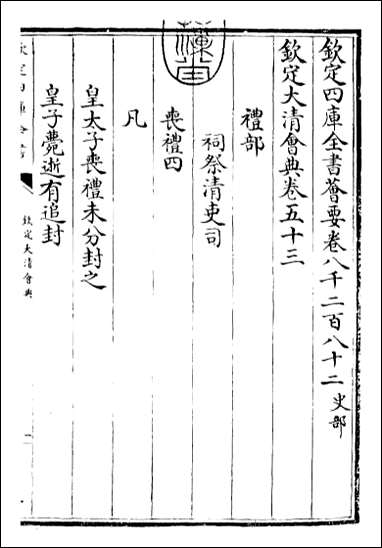 欽定四庫全書薈要卷八千二百八十二史部
欽定大清會典卷五十三
禮部
祠祭清吏司
喪禮四
凡
皇太子喪禮未分封之
皇子薨逝有追封
欽定四庫全書
欽定大清會典
一